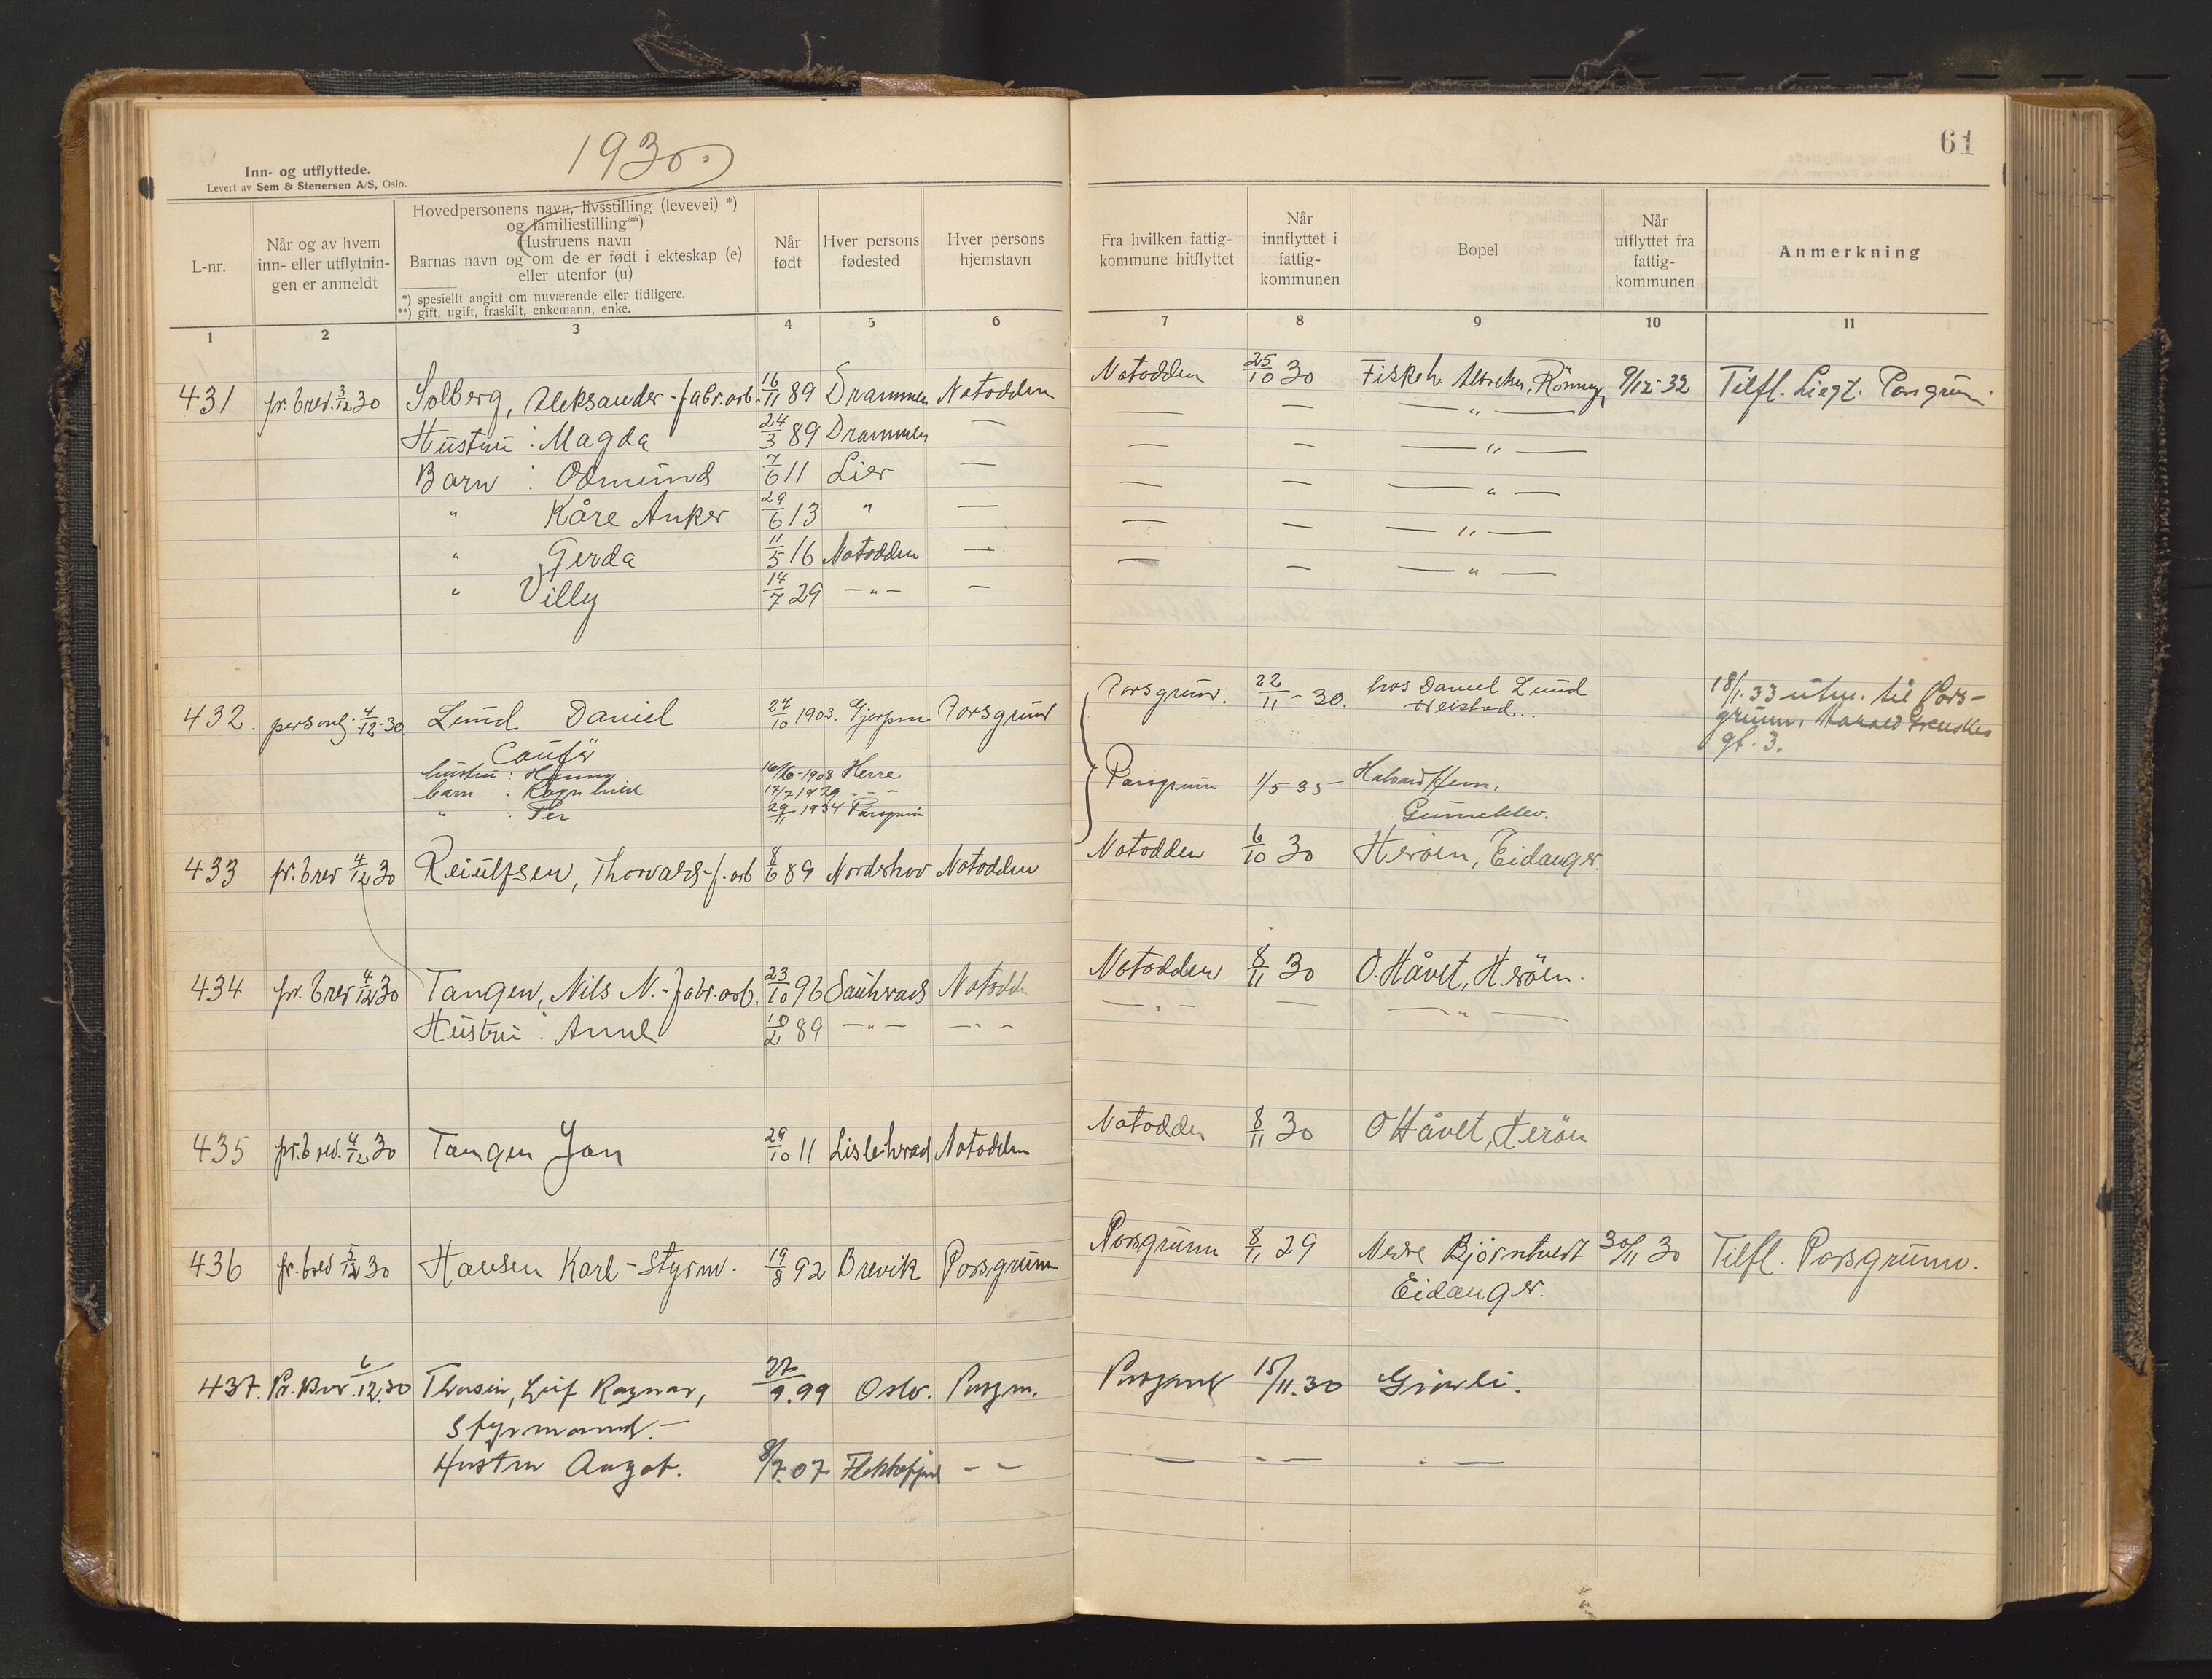 1930.
61
Inn- og utflyttede.
Levert av Sem & Stenersen A/S, Oslo.
L-nr.
Når og av hvem
inn- eller utflytnin-
gen er anmeldt
Hovedpersonens navn, livsstilling (levevei) *)
og familiestilling**)
Hustruens navn
Barnas navn og om de er født i ekteskap (e)
eller utenfor (u)
*) spesiellt angitt om nuværende eller tidligere.
**) gift, ugift, fraskilt, enkemann, enke.
Når
født
Hver persons
fødested
Hver persons
hjemstavn
Fra hvilken fattig-
kommune hitflyttet
Når
innflyttet i
fattig-
kommunen
Bopel
Når
utflyttet fra
fattig-
kommunen
Anmerkning
1 2 3 4 5 6 7 8 9 10 11
431 pr. brev. 3/12 30 Solberg, Aleksander - fabr. arb. 16/11 89 Drammen Notodden Notodden 25/10 30 Fiskeh. 9/12-32 Tilfl. Porsgrunn.
Hustru : Magda 24/3 89 Drammen — — — — " —
Barn : Odmund 7/6 11 Lier — — — — " —
" Kåre Anker 29/6 13 " — — — — " —
" Gerda 11/5 16 Notodden — — — — " —
" Villy 14/7 29 — " — — — — — " —
432. personlig 4/12-30 Lund Daniel 27/10 1903. Gjerpen Porsgrund Porsgrunn. 22/11 - 30. hos Daniel Lund
Heistad. 18/1. 33 utm. til Pors-
grunn, Harald Grenskes
gt. 3.
hustru : 16/6-1908 Herre Porsgrunn 1/5-35 -
barn : Ragnhild 17/7 1929 - - -
" : Per 29/11 1934 Porsgrunn
433 pr. brev 4/12 30 Reiulfsen, Thorvald - f. arb 8/6 89 Nordshov Notodden Notodden 6/10 30 Herøen, Eidanger.
434 pr. brev 4/12 30 Tangen, Nils N. - fabr. arb. 23/10 96 Sauherad Notodd Notodden 8/11 30 O. Håvet, Herøen.
Hustru : Anne 10/2 89 — " — — " — — " — — — " —
435 pr. brev. 4/12 30 Tangen Jan 29/10 11 Lisleherad Notodden Notodden 8/11 30 O Håvet, Herøen
436 pr. brev 5/12 30 Hansen Karl - Styrm. 19/8 92 Brevik Porsgrunn Porsgrunn 8/11 29 Nedre Bjørntvedt
Eidanger. 30/11 30 Tilfl. Porsgrunn.
437. Pr. Brev. 6/12.30 Leif Ragnar,
Styrmand. — 27/9.99 Oslo. Porsgr. Porsgrund 15/11.30
Hustru Aagot. 8/7.07 Flekkefjord — — — — — — —